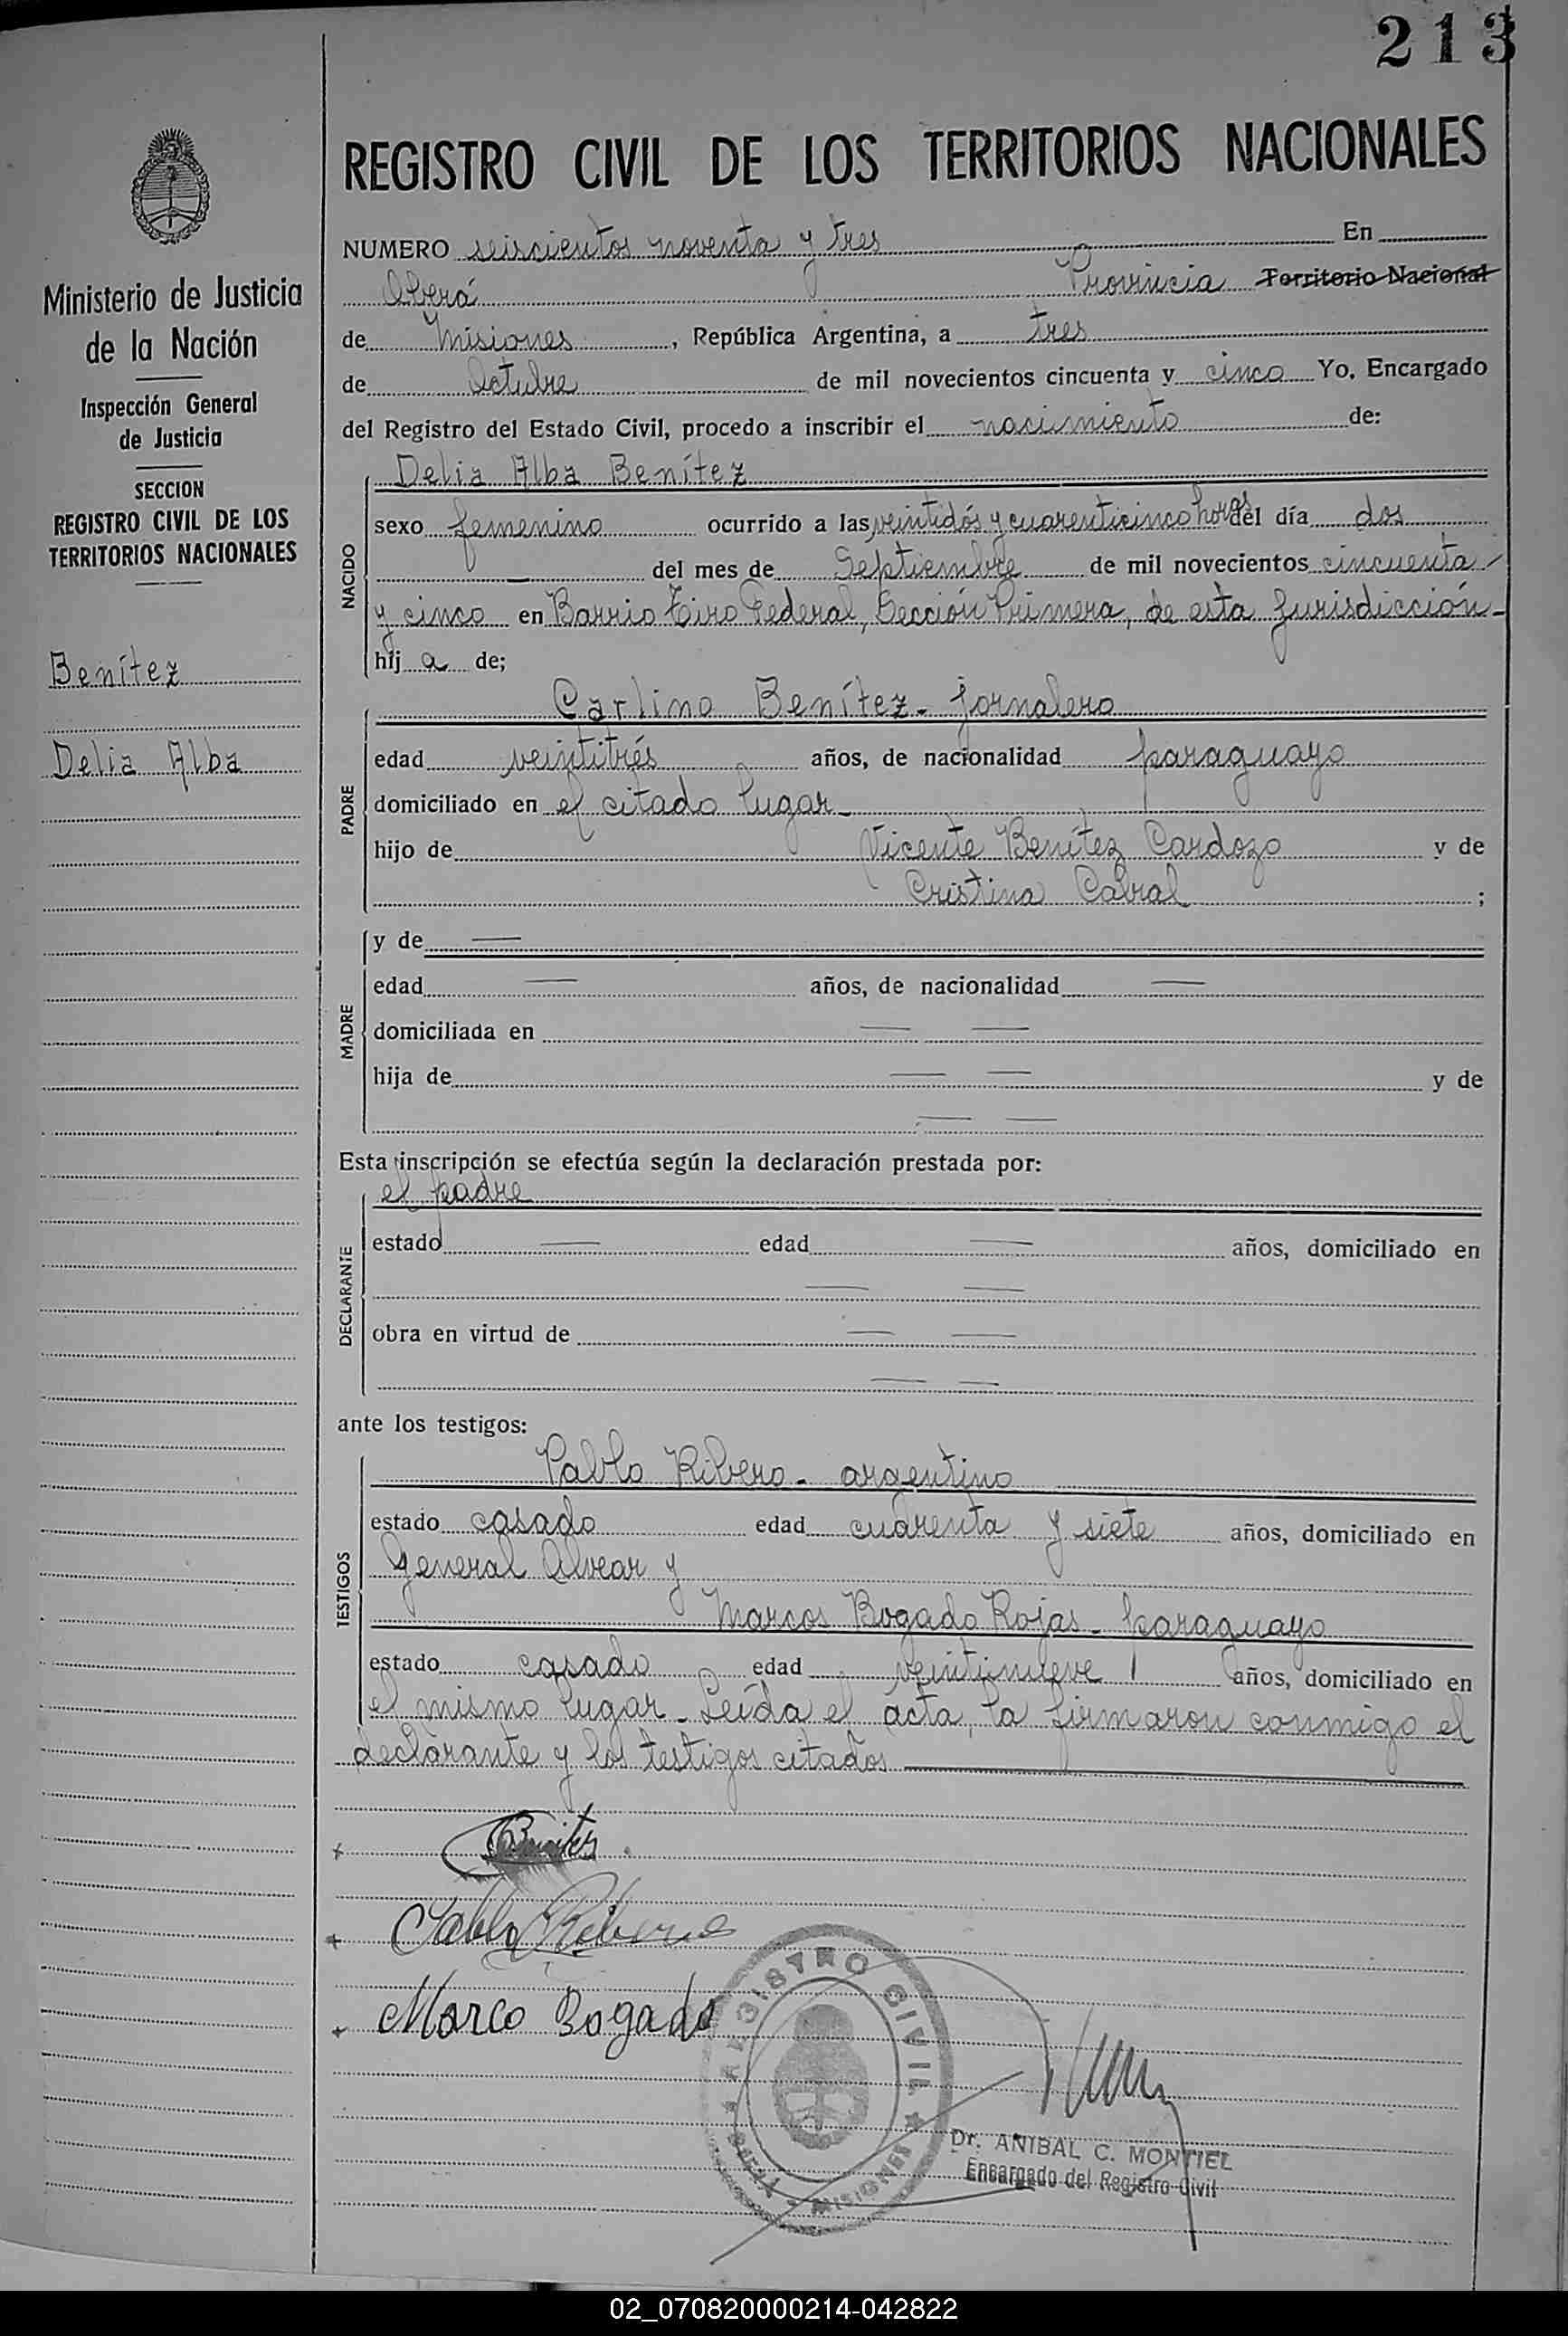 213
REGISTRO CIVIL DE LOS TERRITORIOS NACIONALES
Ministerio de Justicia
de la Nación
Inspección General
de Justicia
SECCION
REGISTRO CIVIL DE LOS
TERRITORIOS NACIONALES
Benítez
Delia Alba
NUMERO seiscientos noventa y tres En
Oberá Provincia Territorio Nacional
de Misiones, República Argentina, a tres
de Octubre de mil novecientos cincuenta y cinco Yo, Encargado
del Registro del Estado Civil, procedo a inscribir el nacimiento de:
NACIDO
Delia Alba Benítez
sexo femenino ocurrido a las veintidós y cuarenticinco horas del día dos
— del mes de Septiembre de mil novecientos cincuenta
y cinco en Barrio Tiro Federal, Sección Primera, de esta Jurisdicción-
hij a de;
PADRE
Carlino Benítez- jornalero
edad veintitrés años, de nacionalidad paraguayo
domiciliado en el citado lugar-
hijo de Vicente Benítez Cardozo y de
Cristina Cabral ;
MADRE
y de —
edad — años, de nacionalidad —
domiciliada en — —
hija de — — y de
— —
Esta inscripción se efectúa según la declaración prestada por:
DECLARANTE
el padre
estado — edad — años, domiciliado en
— —
obra en virtud de — —
— —
ante los testigos:
TESTIGOS
Pablo Ribero- argentino
estado casado edad cuarenta y siete años, domiciliado en
General Alvear y
Marcos Bogado Rojas- paraguayo
estado casado edad veintinueve años, domiciliado en
el mismo lugar- Leída el acta, la firmaron conmigo el
declarante y los testigos citados
x Benites
+ Pablo Ribero
+ Marco Bogado
REGISTRO CIVIL
MISIONES
Dr. ANIBAL C. MONTIEL
Encargado del Registro Civil
02_070820000214-042822